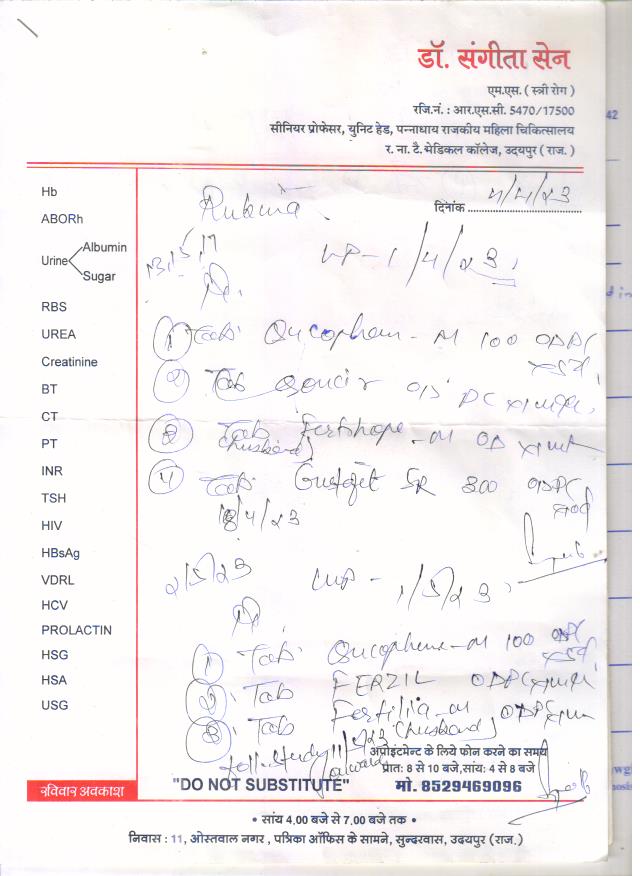 डॉ. संगीता सेन
एम.एस. ( स्त्री रोग )
रजि.नं. : आर.एस.सी. 5470/17500
सीनियर प्रोफेसर, युनिट हेड, पन्नाधाय राजकीय महिला चिकित्सालय
र. ना. टै. मेडिकल कॉलेज, उदयपुर ( राज. )
दिनांक 4/4/23
Hb
ABORh
Urine Albumin
Sugar
RBS
UREA
Creatinine
BT
CT
PT
INR
TSH
HIV
HBsAg
VDRL
HCV
PROLACTIN
HSG
HSA
USG
रविवार अवकाश
13, 15, 17
LMP - 1/4/23
① Tab. - M 100 OD PC
② Tab OD PC
③ Tab Fertihope - M OD
(husband)
④ Tab SR 300 OD PC
18/4/23
2/5/23 LMP - 1/5/23
① Tab. - M 100
② Tab FERZIL OD PC
③ Tab Fertilia - M OD PC
(husband)
foll. study 11/5/23 onwards
अपोइंटमेन्ट के लिये फोन करने का समय
प्रात: 8 से 10 बजे,सांय: 4 से 8 बजे
"DO NOT SUBSTITUTE" मो. 8529469096
• सांय 4.00 बजे से 7.00 बजे तक •
निवास : 11, ओस्तवाल नगर , पत्रिका ऑफिस के सामने, सुन्दरवास, उदयपुर (राज.)
42